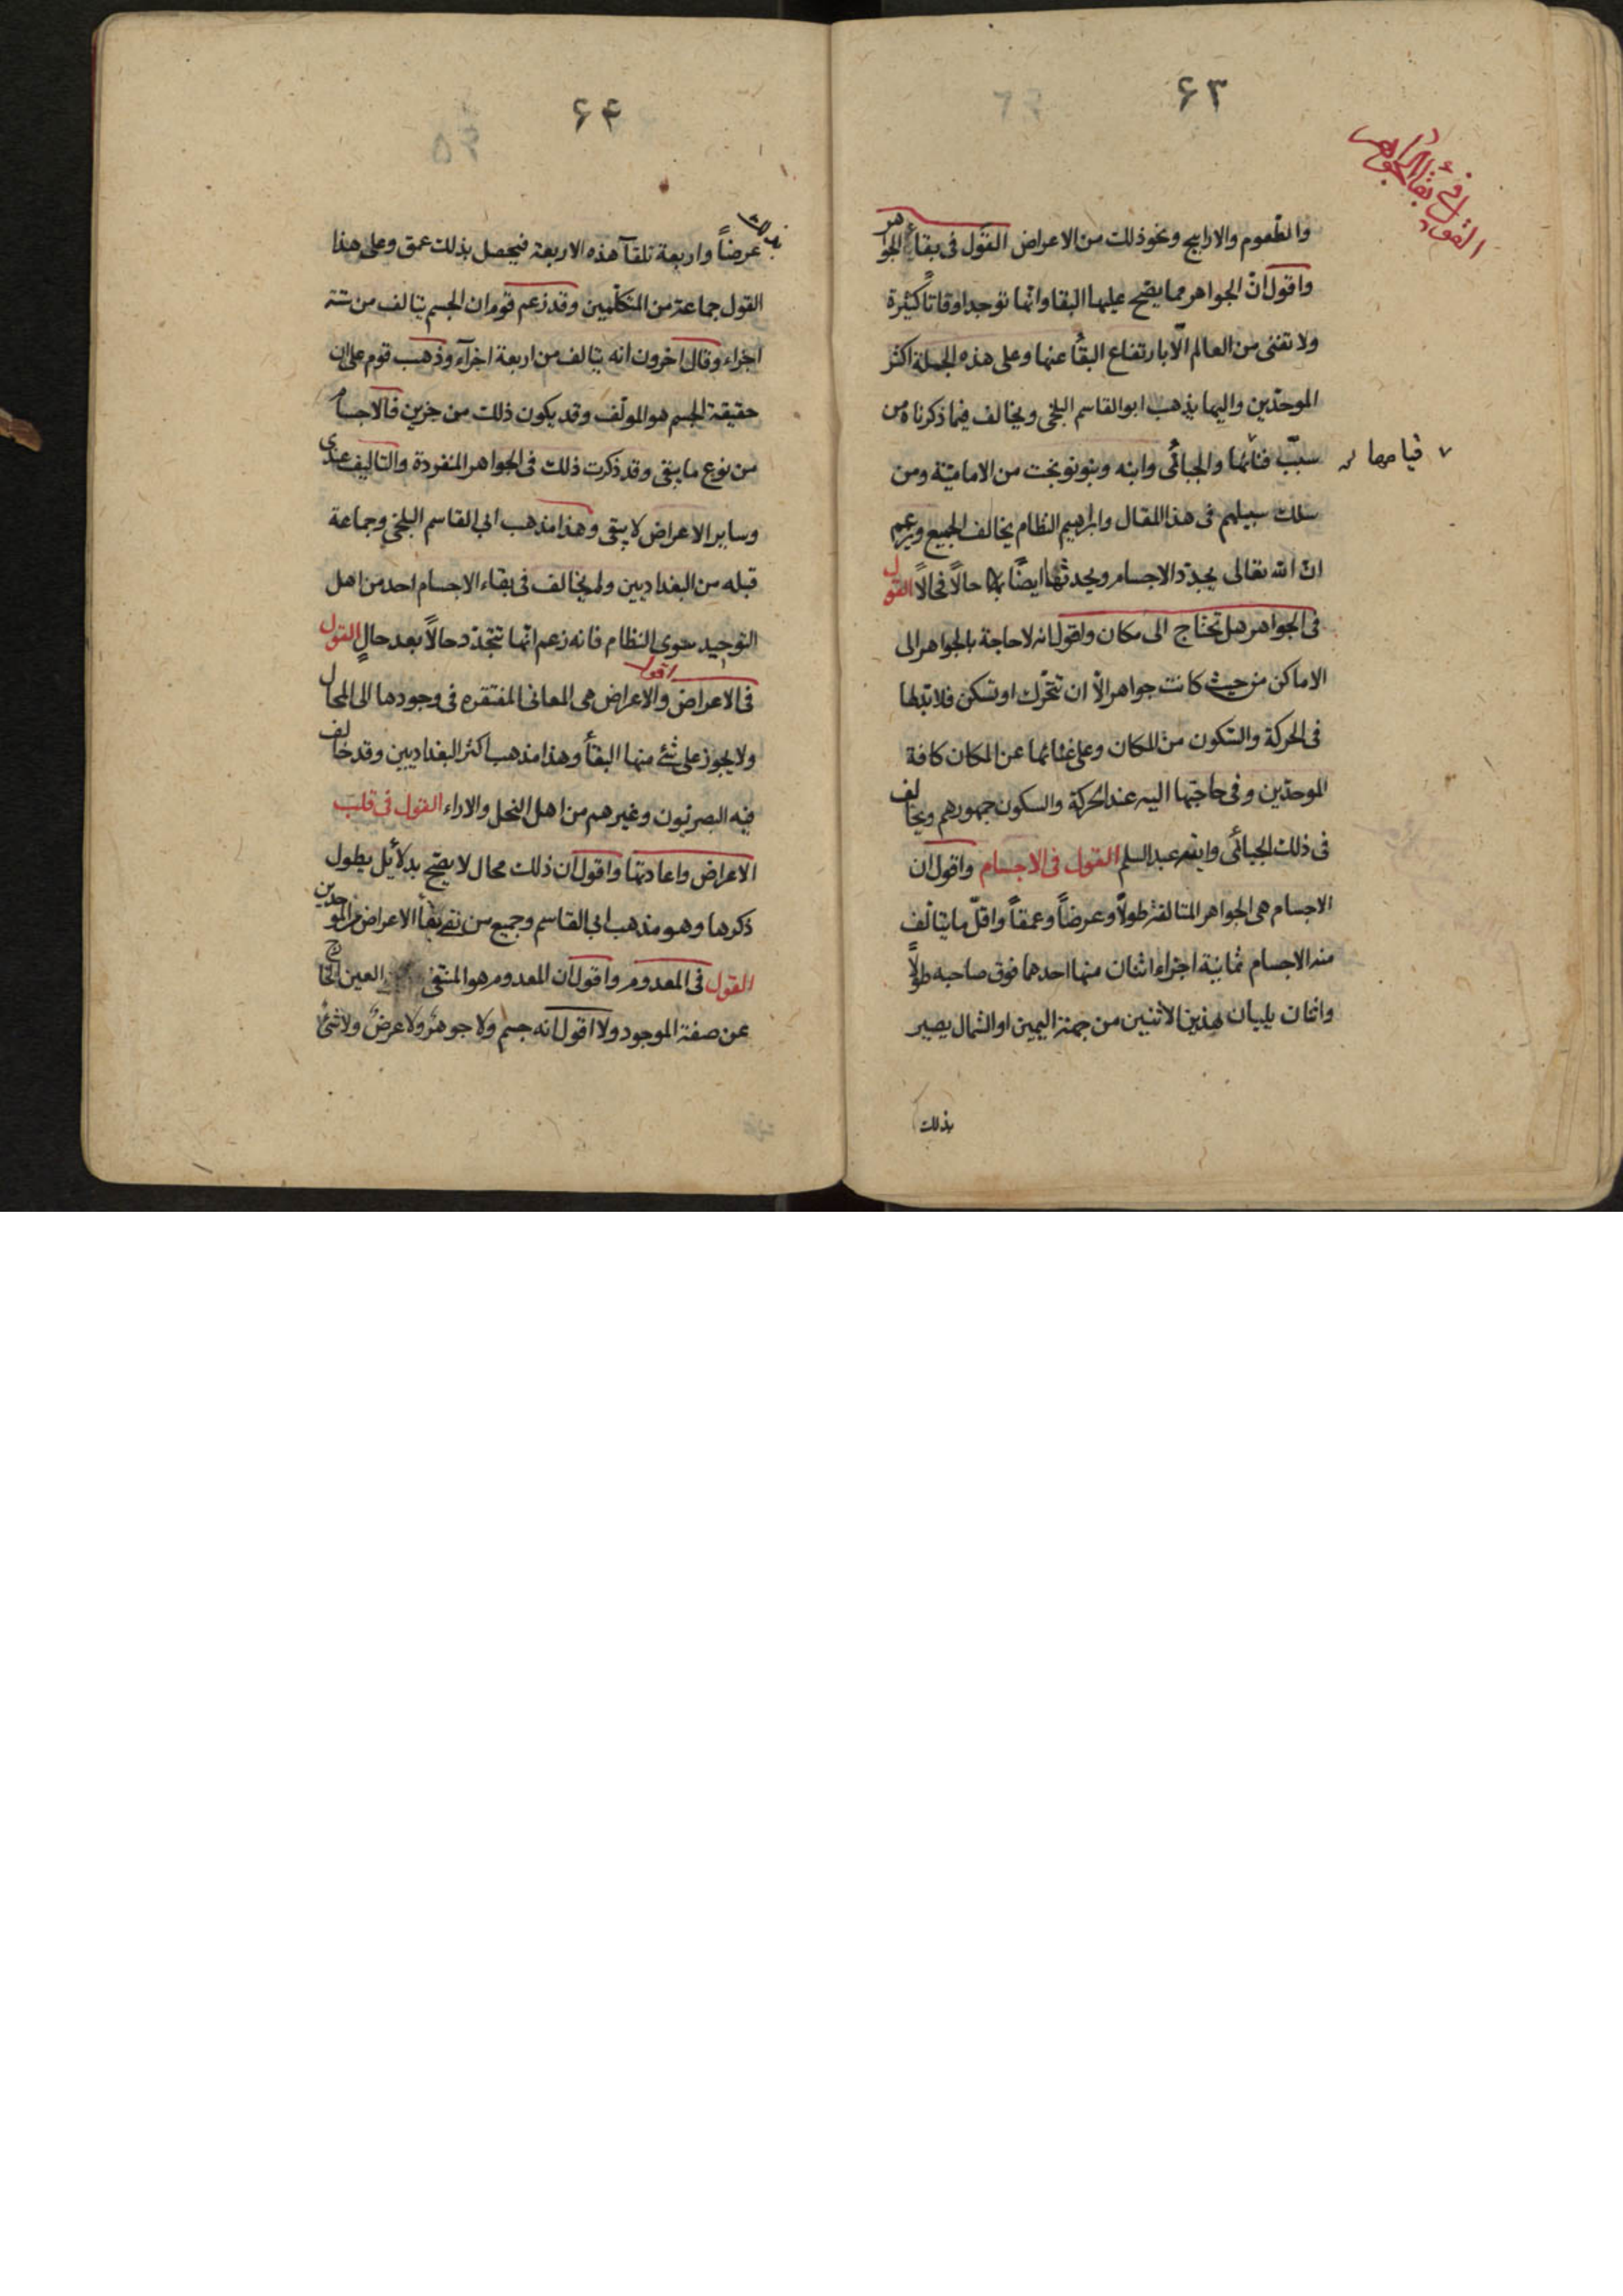 ۶۳
القول فى بقاء الجواهر
والطعوم والاراييح ونحو ذلك من الاعراض القول فى بقاء الجواهر
واقول انّ الجواهر مما يصحّ عليها البقا وانّها توجد اوقاتاً كثيرة
ولا تفنى من العالم الّا بارتفاع البقأ عنها وعلى هذه الجملة اكثر
الموحدّين واليها يذهب ابو القاسم البلخى ويخالف فيما ذكرناه من
سبب فنائها والجبائى وابنه وبنو نوبخت من الامامية ومن
سلك سبيلهم فى هذا المقال وابرهيم النظام يخالف الجميع ويزعم
انّ الله تعالى يجدّد الاجسام ويحدثها ايضًا حالًا فحالًا القول
فى الجواهر هل تحتاج الى مكان واقول انه لا حاجة بالجواهر الى
الاماكن من حيث كانت جواهر الّا ان تتحرّك او تسكن فلا بد لها
فى الحركة والسّكون من المكان وعلى غنائها عن المكان كافة
الموحدّين وفى حاجتها اليه عند الحركة والسكون جمهورهم ويخالف
فى ذلك الجبائى وابنه عبد السلم القول فى الاجسام واقول ان
الاجسام هى الجواهر المتالفة طولاً وعرضاً وعمقاً واقلّ ما يتالف
منه الاجسام ثمانية اجزاء اثنان منها احدهما فوق صاحبه طولاً
واثنان يليان هذين الاثنين من جهة اليمين او الشمال يصير
بذلك
۶۴
۶۵
بذلك
عرضاً واربعة تلقآ هذه الاربعة فيحصل بذلك عمق وعلى هذا
القول جماعة من المتكلّمين وقد زعم قوم ان الجسم يتالف من ستة
اجزاء وقال اخرون انه يتالف من اربعة اجزآء وذهب قوم على ان
حقيقة الجسم هو المولّف وقد يكون ذلك من جزين فالاجسام
من نوع ما يبقى وقد ذكرت ذلك فى الجواهر المنفردة والتاليف عندى
وساير الاعراض لا يبقى وهذا مذهب ابى القاسم البلخى وجماعة
قبله من البغداديين ولم يخالف فى بقاء الاجسام احد من اهل
التوحيد سوى النظام فانه زعم انها تتجدّد حالاً بعد حالٍ القول
اقول
فى الاعراض والاعراض هى المعانى المفتقره فى وجودها الى المحال
ولا يجوز على شئ منها البقأ وهذا مذهب اكثر البغداديين وقد خالف
فيه البصريون وغيرهم من اهل النحل والاراء القول فى قلب
الاعراض واعادتها واقول ان ذلك محال لا يصحّ بدلائل يطول
ذكرها وهو مذهب ابى القاسم وجميع من نفى بقأ الاعراض من الموحدين
القول فى المعدوم واقول ان المعدوم هو المنتفى العين الخارج
عن صفة الموجود ولا اقول انه جسم ولا جوهر ولا عرض ولا شئ